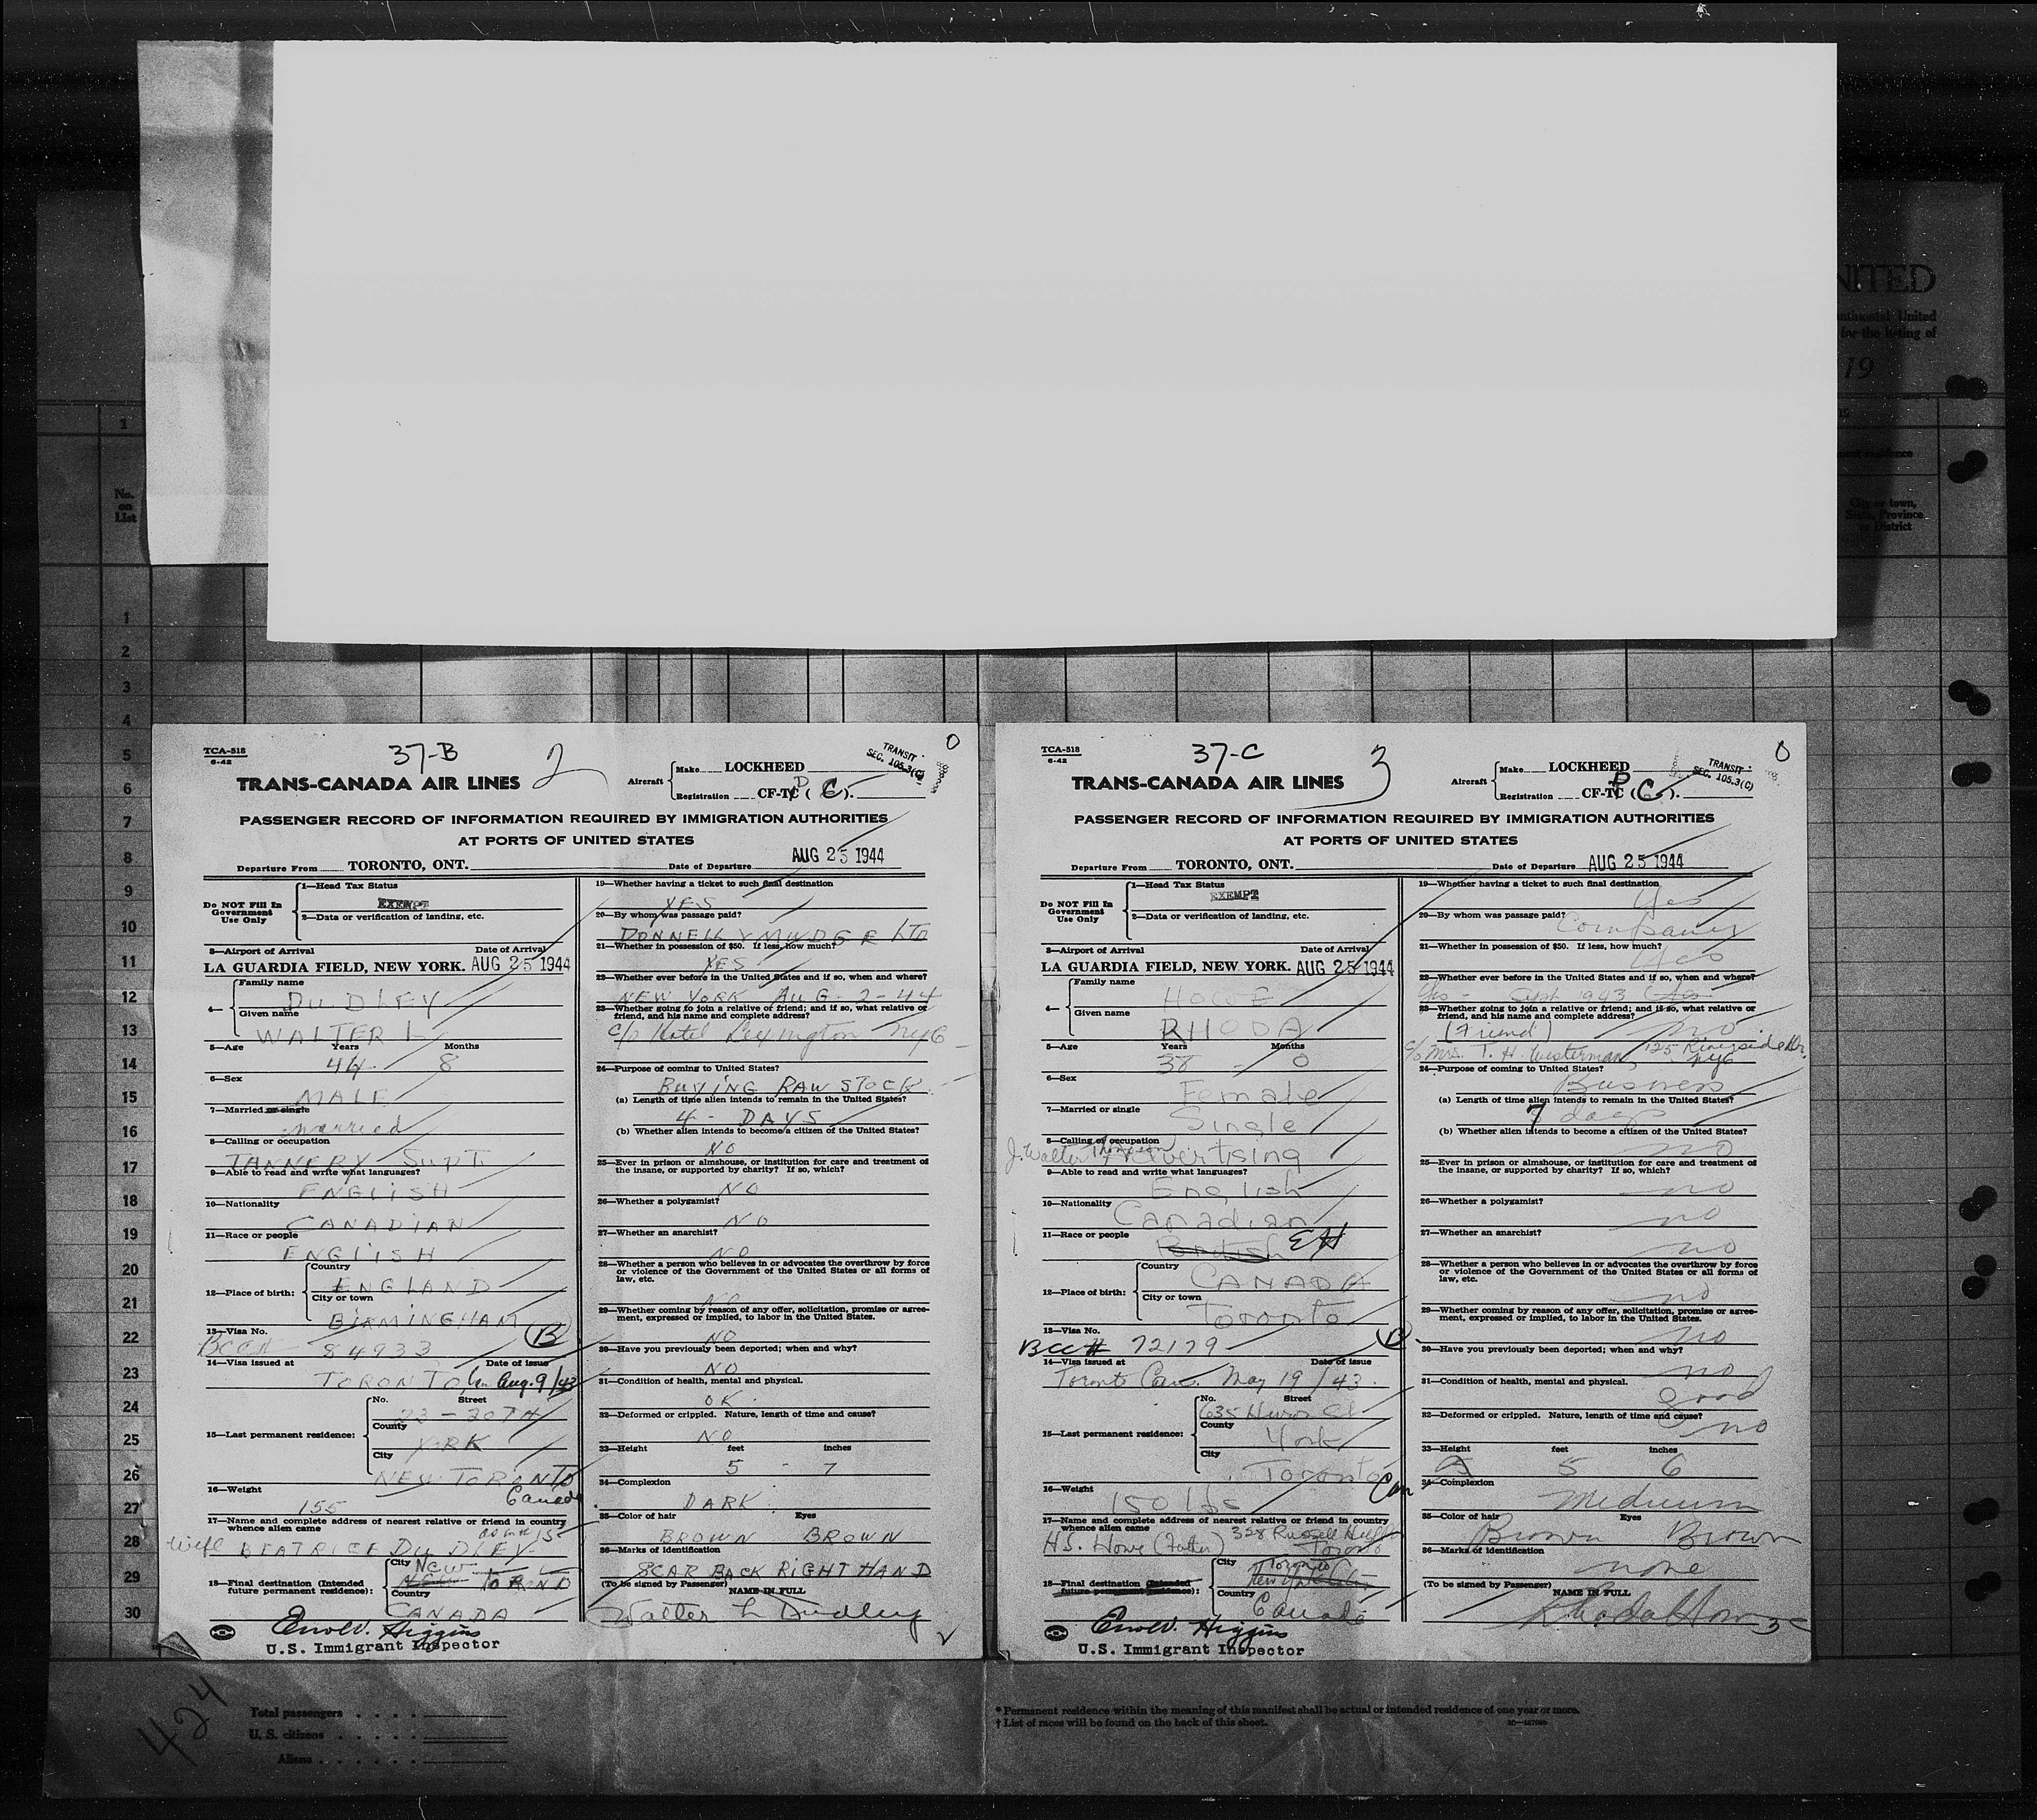 NITED
ontinental United
for the listing of
19
1
ent residence
No.
on
List
City or town,
State, Province
or District
1
2
3
4
5
6
7
8
9
10
11
12
13
14
15
16
17
18
19
20
21
22
23
24
25
26
27
28
29
30
TCA-518
6-42
37-B
2
0
TRANSIT
SEC. 105.3(C)
TRANS-CANADA AIR LINES
Aircraft
Make LOCKHEED
Registration CF-TC ( C ).
PASSENGER RECORD OF INFORMATION REQUIRED BY IMMIGRATION AUTHORITIES
AT PORTS OF UNITED STATES
Departure From TORONTO, ONT. Date of Departure AUG 25 1944
Do NOT Fill In
Government
Use Only
1—Head Tax Status
EXEMPT
2—Data or verification of landing, etc.
3—Airport of Arrival Date of Arrival
LA GUARDIA FIELD, NEW YORK. AUG 25 1944
4—
Family name
DUDLEY
Given name
WALTER L
5—Age Years Months
44 8
6—Sex
MALE
7—Married or single
married
8—Calling or occupation
TANNERY SUPT.
9—Able to read and write what languages?
ENGLISH
10—Nationality
CANADIAN
11—Race or people
ENGLISH
12—Place of birth:
Country
ENGLAND
City or town
BIRMINGHAM
13—Visa No. B
BCC# 84933
14—Visa issued at Date of issue
TORONTO Can. Aug. 9/43
15—Last permanent residence:
No. Street
22 - 20TH
County
YORK
City
NEW TORONTO
Canada
16—Weight
155
17—Name and complete address of nearest relative or friend in country
whence alien came
as in # 15
wife BEATRICE DUDLEY
18—Final destination (Intended
future permanent residence):
City New
TORONTO
Country
CANADA
Enol V. Higgins
U.S. Immigrant Inspector
19—Whether having a ticket to such final destination
YES
20—By whom was passage paid?
DONNELL & MUDGE LTD
21—Whether in possession of $50. If less, how much?
YES
22—Whether ever before in the United States and if so, when and where?
NEW YORK AUG-2-44
23—Whether going to join a relative or friend; and if so, what relative or
friend, and his name and complete address?
c/o Hotel Lexington NYC
24—Purpose of coming to United States?
BUYING RAW STOCK
(a) Length of time alien intends to remain in the United States?
4 - DAYS
(b) Whether alien intends to become a citizen of the United States?
NO
25—Ever in prison or almshouse, or institution for care and treatment of
the insane, or supported by charity? If so, which?
NO
26—Whether a polygamist?
NO
27—Whether an anarchist?
NO
28—Whether a person who believes in or advocates the overthrow by force
or violence of the Government of the United States or all forms of
law, etc.
NO
29—Whether coming by reason of any offer, solicitation, promise or agree-
ment, expressed or implied, to labor in the United States.
NO
30—Have you previously been deported; when and why?
NO
31—Condition of health, mental and physical.
OK
32—Deformed or crippled. Nature, length of time and cause?
NO
33—Height feet inches
5 - 7
34—Complexion
DARK
35—Color of hair Eyes
BROWN BROWN
36—Marks of identification
SCAR BACK RIGHT HAND
(To be signed by Passenger)
NAME IN FULL
Walter L Dudley
TCA-518
6-42
37-C
3
0
TRANSIT
SEC. 105.3(C)
TRANS-CANADA AIR LINES
Aircraft
Make LOCKHEED
Registration CF-TC ( C ).
PASSENGER RECORD OF INFORMATION REQUIRED BY IMMIGRATION AUTHORITIES
AT PORTS OF UNITED STATES
Departure From TORONTO, ONT. Date of Departure AUG 25 1944
Do NOT Fill In
Government
Use Only
1—Head Tax Status
EXEMPT
2—Data or verification of landing, etc.
3—Airport of Arrival Date of Arrival
LA GUARDIA FIELD, NEW YORK. AUG 25 1944
4—
Family name
HOWE
Given name
RHODA
5—Age Years Months
38 - 0
6—Sex
Female
7—Married or single
Single
8—Calling or occupation
J. Walter Thompson Advertising
9—Able to read and write what languages?
English
10—Nationality
Canadian
11—Race or people
British EH
12—Place of birth:
Country
CANADA
City or town
Toronto
13—Visa No.
BCC# 72179
14—Visa issued at Date of issue
Toronto Can. May 19/43.
15—Last permanent residence:
No. Street
635 Huron St
County
York
City
Toronto
Can
16—Weight
150 lbs
17—Name and complete address of nearest relative or friend in country
whence alien came
H.S. Howe (Father) 328 Russell Hill
Toronto
18—Final destination (Intended
future permanent residence):
City Toronto
New York City
Country
Canada
Enol V. Higgins
U.S. Immigrant Inspector
19—Whether having a ticket to such final destination
Yes
20—By whom was passage paid?
Company
21—Whether in possession of $50. If less, how much?
Yes
22—Whether ever before in the United States and if so, when and where?
Yes - Sept 1943
23—Whether going to join a relative or friend; and if so, what relative or
friend, and his name and complete address?
(Friend) no
c/o Mrs. T. H. Westerman, 125 Riverside Dr.
NYC
24—Purpose of coming to United States?
Business
(a) Length of time alien intends to remain in the United States?
7 days
(b) Whether alien intends to become a citizen of the United States?
no
25—Ever in prison or almshouse, or institution for care and treatment of
the insane, or supported by charity? If so, which?
no
26—Whether a polygamist?
no
27—Whether an anarchist?
no
28—Whether a person who believes in or advocates the overthrow by force
or violence of the Government of the United States or all forms of
law, etc.
no
29—Whether coming by reason of any offer, solicitation, promise or agree-
ment, expressed or implied, to labor in the United States.
no
30—Have you previously been deported; when and why?
no
31—Condition of health, mental and physical.
Good
32—Deformed or crippled. Nature, length of time and cause?
no
33—Height feet inches
5 6
34—Complexion
Medium
35—Color of hair Eyes
Brown Brown
36—Marks of identification
none
(To be signed by Passenger)
NAME IN FULL
Rhoda Howe
424
Total passengers
U. S. citizens
Aliens
* Permanent residence within the meaning of this manifest shall be actual or intended residence of one year or more.
† List of races will be found on the back of this sheet.